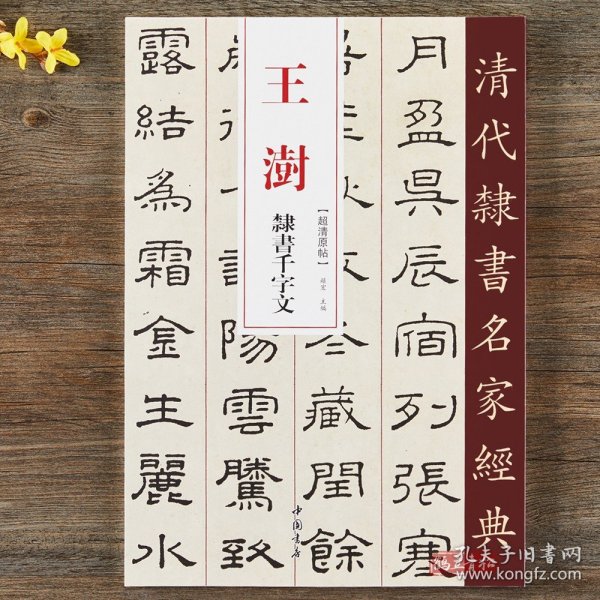 清代隸書名家經典
月盈昃辰宿列張寒
冬藏閏餘
陽雲騰致
露結為霜金生麗水
王澍
隸書千字文
【超清原帖】
主编
中国書店
孔夫子旧书网
www.kongfz.com